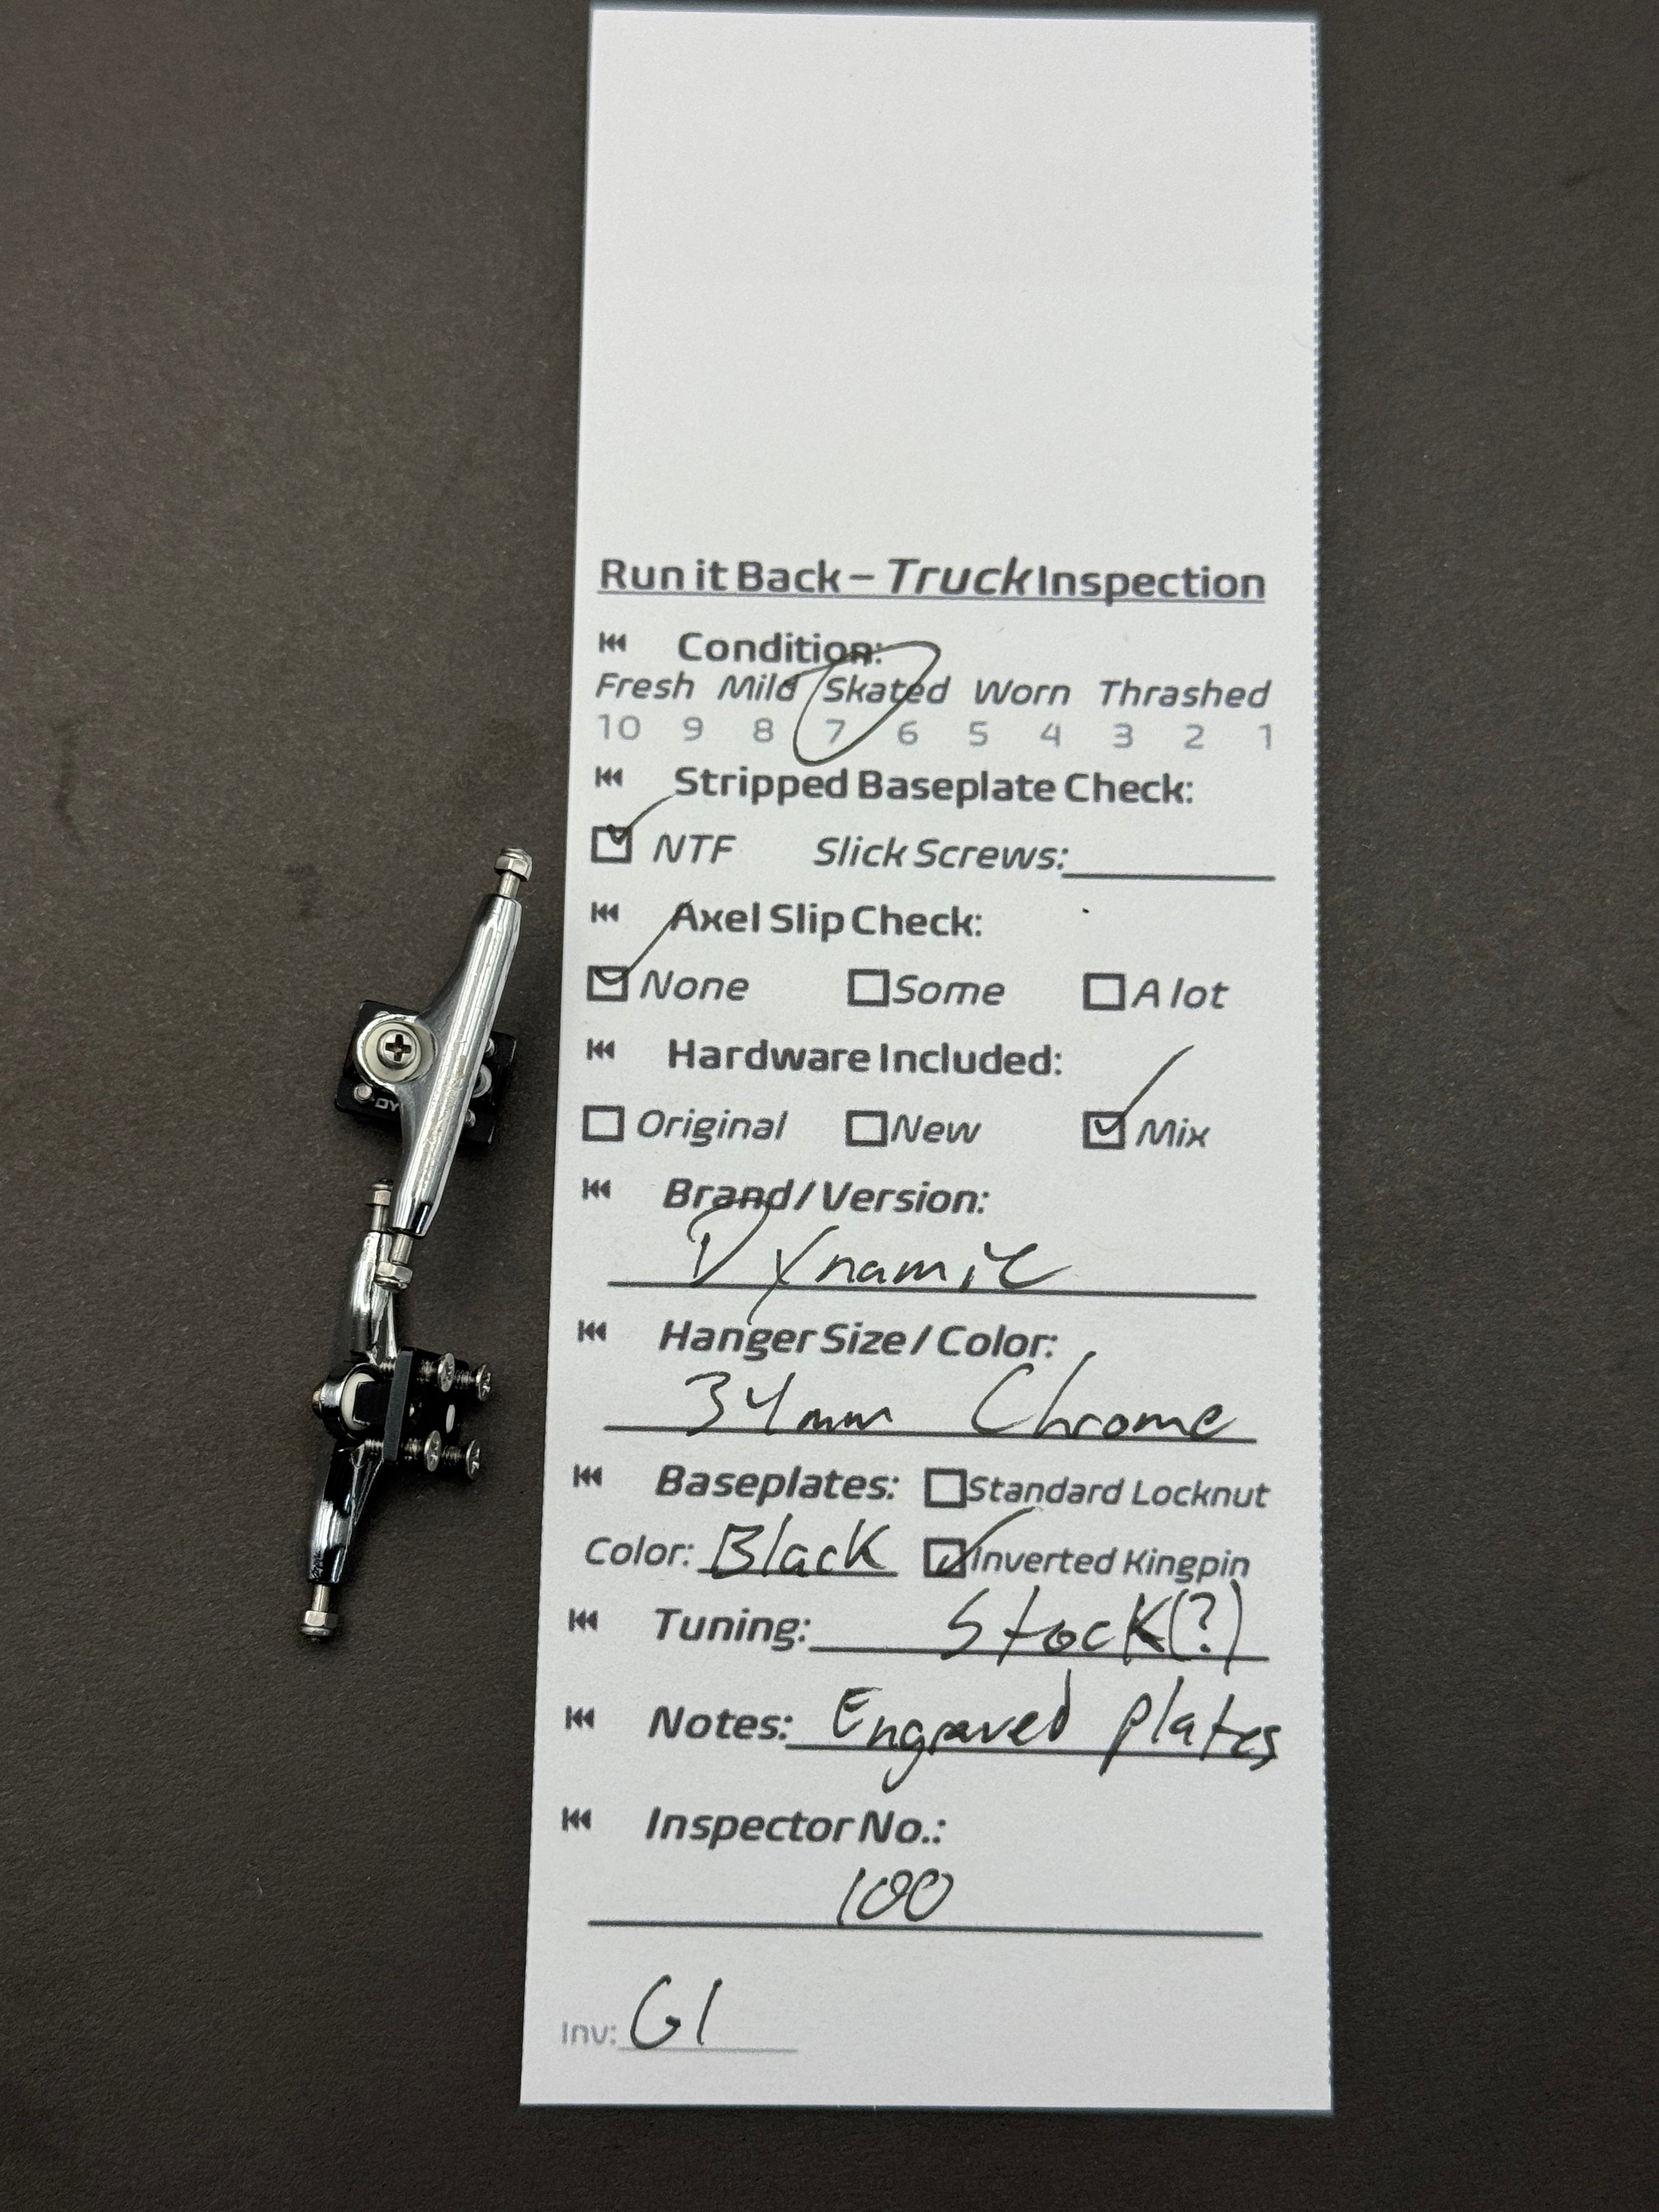 Run it Back - Truck Inspection
Condition:
Fresh Mild Skated Worn Thrashed
10 9 8 7 6 5 4 3 2 1
Stripped Baseplate Check:
NTF Slick Screws:
Axel Slip Check:
None Some A lot
Hardware Included:
Original New Mix
Brand / Version:
Dynamic
Hanger Size / Color:
34mm Chrome
Baseplates: Standard Locknut
Color: Black Inverted Kingpin
Tuning: Stock(?)
Notes: Engraved plates
Inspector No.:
100
Inv: G1
DY